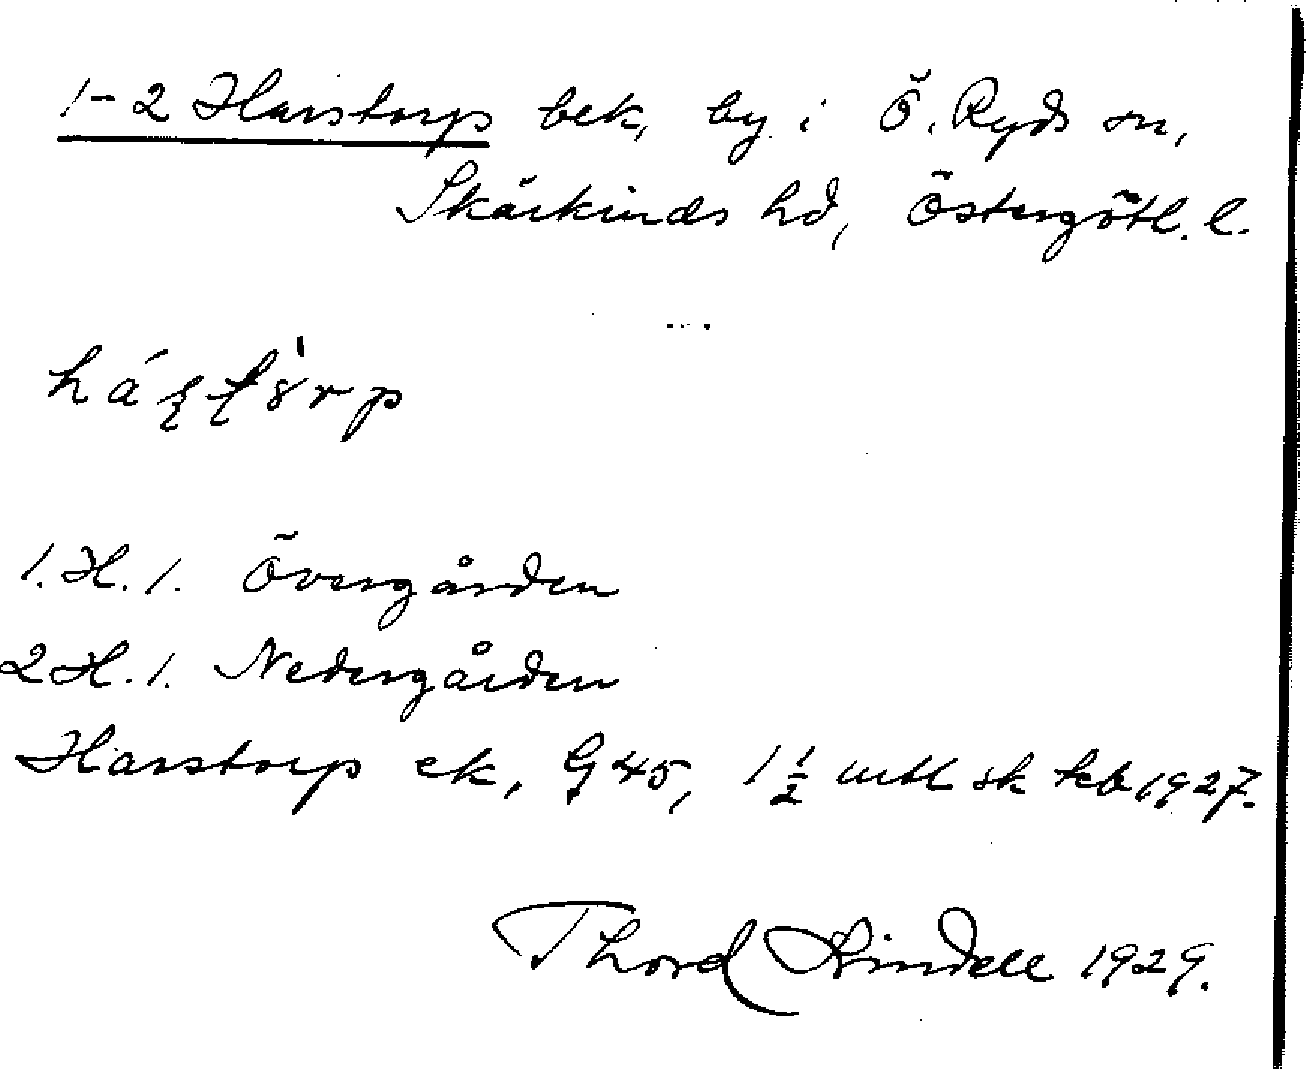 1-2 Harstorp bek, by i Ö. Ryds sn,
Skärkinds hd, Östergötl. l.
1.H. 1. Övergården
2 H. 1. Nedergården
Harstorp ek, G 45, 1 1/2 mtl sk Jeb 1927.
Thord Lindell 1929.